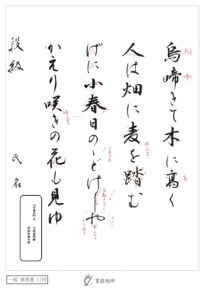 烏啼きて木に高く
人は畑に麦を踏む
げに小春日ののどけしや
かえり咲きの花も見ゆ
段級 氏名
一般 実用書 12月
書道教研